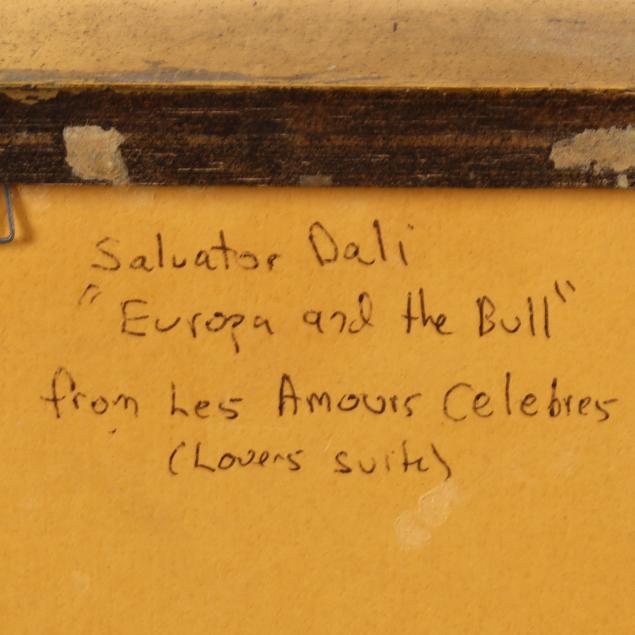 Salvator Dali
"Europa and the Bull"
from Les Amours Celebres
(Lovers suite)